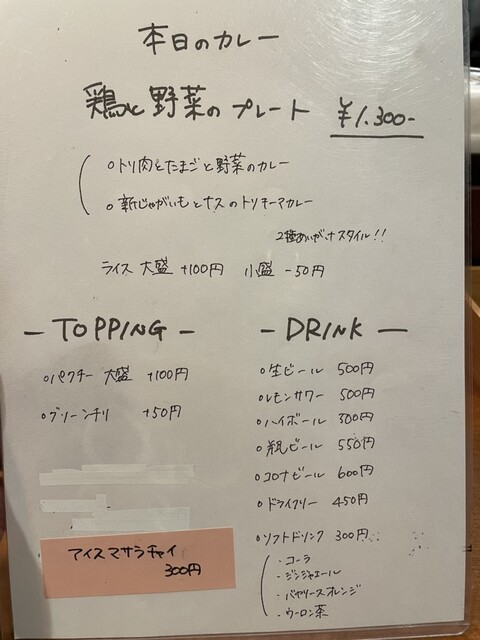 本日のカレー
鶏と野菜のプレート ¥1.300-
○トリ肉とたまごと野菜のカレー
○新じゃがいもとナスのトリキーマカレー
2種あいがけスタイル!!
ライス 大盛 +100円 小盛 -50円
- TOPPING -
○パクチー 大盛 +100円
○グリーンチリ +50円
アイスマサラチャイ
300円
- DRINK -
○生ビール 500円
○レモンサワー 500円
○ハイボール 300円
○瓶ビール 550円
○コロナビール 600円
○ドライフリー 450円
○ソフトドリンク 300円
・コーラ
・ジンジャエール
・バヤリースオレンジ
・ウーロン茶